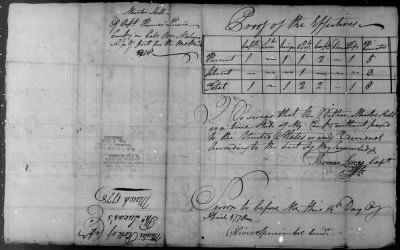 Muster Roll
Of Capt Thomas Lucas
Company in Colo Wm Malcom
Regt for the Month
1778
Proof of the Effectives
Capt Lieut Privates
Present 1 — 1 1 2 — 1 5
Absent — — — — — 3
Total 1 — 1 2 2 — 1 8
I Do swear that the Within Muster Roll
is a true State of My Company without fraud
to the United States or any Individual
According to the best of My Knowledge
Thomas Lucas Capt
Sworn to before Me this 14th Day of
April 1778
Muster Roll of Capt
Thos Lucas's
March 1778